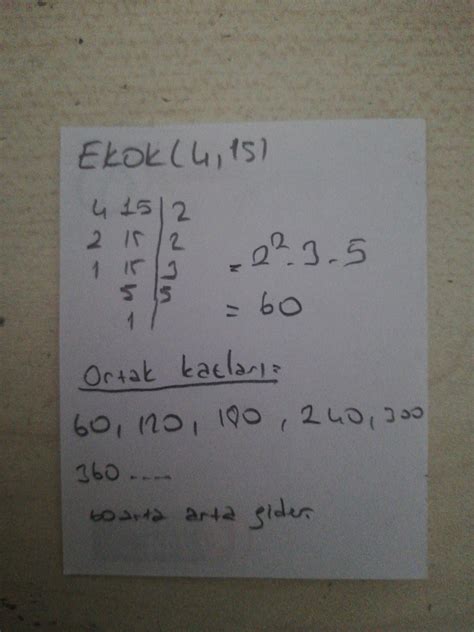 EKOK(4,15)
4 15 | 2
2 15 | 2
1 15 | 3
5 | 5
1 |
= 2².3.5
= 60
Ortak katları=
60, 120, 180, 240, 300
360 ....
60 arta arta gider.